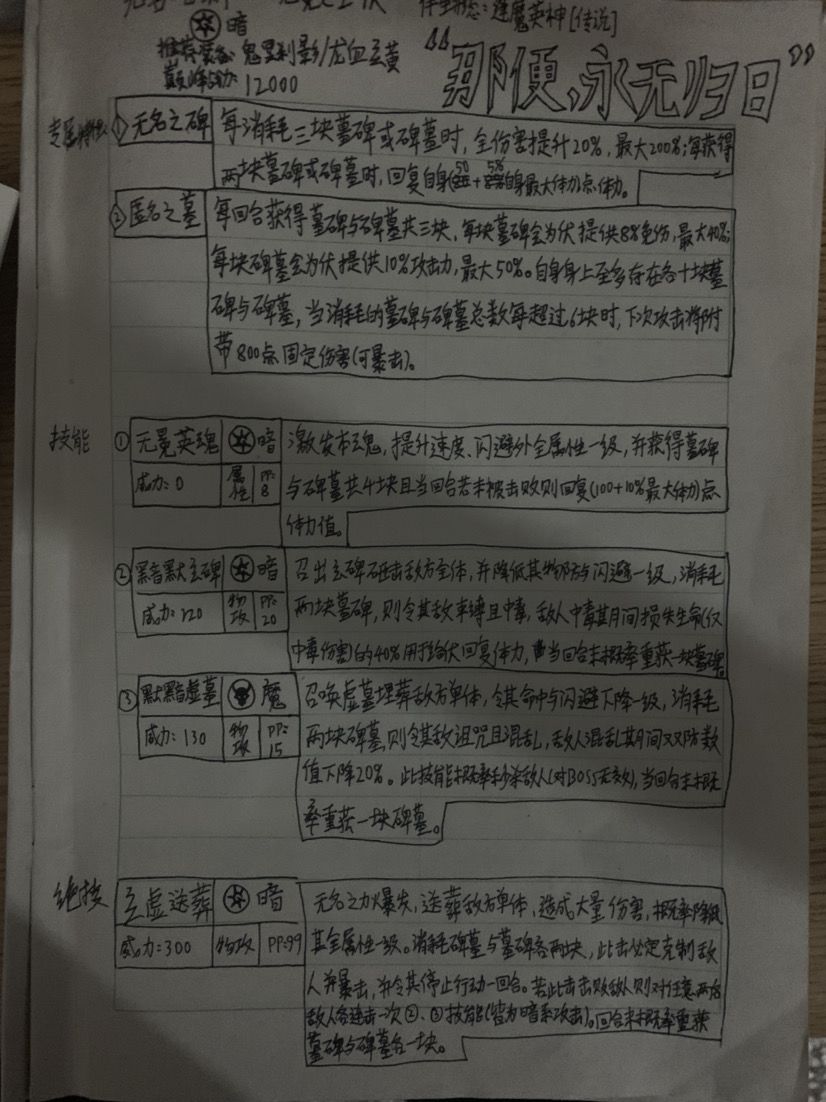 伴生状态：逢魔英神[传说]
暗
推荐装备：鬼墨利影/龙血玄黄
巅峰战力：12000
“那便,永无归日”
专属特性
①无名之碑
每消耗三块墓碑或碑墓时，全伤害提升20%，最大200%；每获得
两块墓碑或碑墓时，回复自身(50+5%自身最大体力)点体力。
②匿名之墓
每回合获得墓碑与碑墓共三块，每块墓碑会为伏提供8%免伤，最大40%；
每块碑墓会为伏提供10%攻击力，最大50%。自身身上至多存在各十块墓
碑与碑墓，当消耗的墓碑与碑墓总数每超过6块时，下次攻击将附
带800点固定伤害(可暴击)。
技能
①无冕英魂 暗
威力：0 属性 PP：8
激发本魂，提升速度、闪避外全属性一级，并获得墓碑
与碑墓共4块且当回合若未被击败则回复(100+10%最大体力)点
体力值。
②黑暗默玄碑 暗
威力：120 物攻 PP：20
召出玄碑砸击敌方全体，并降低其物防与闪避一级，消耗
两块墓碑，则令其敌束缚且中毒，敌人中毒其间损失生命(仅
中毒伤害)的40%用于给伏回复体力，当回合末概率重获一块墓碑
③默黯虚墓 魔
威力：130 物攻 PP：15
召唤虚墓埋葬敌方单体，令其命中与闪避下降一级，消耗
两块碑墓，则令其敌诅咒且混乱，敌人混乱其间双防数
值下降20%。此技能概率秒杀敌人(对BOSS无效)，当回合末概
率重获一块碑墓。
绝技
玄虚送葬 暗
威力=300 物攻 PP：99
无名之力爆发，送葬敌方单体，造成大量伤害，概率降低
其全属性一级。消耗碑墓与墓碑各两块，此击必定克制敌
人并暴击，并令其停止行动一回合。若此击击败敌人则对任意两名
敌人各连击一次②、③技能(皆为暗系攻击)。回合末概率重获
墓碑与碑墓各一块。